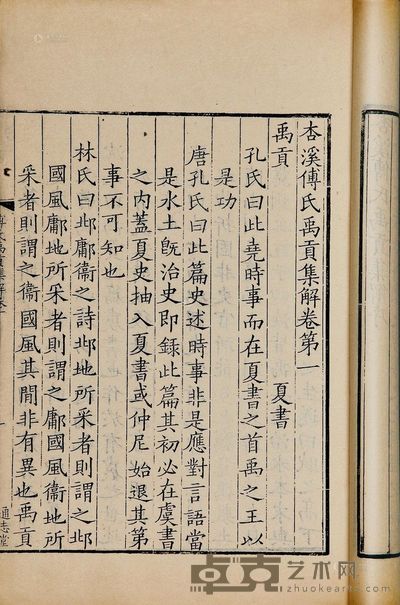 杏溪傅氏禹貢集解卷第一
禹貢　夏書
孔氏曰此堯時事而在夏書之首禹之王以
是功
唐孔氏曰此篇史述時事非是應對言語當
是水土旣治史即錄此篇其初必在虞書
之內蓋夏史抽入夏書或仲尼始退其第
事不可知也
林氏曰邶鄘衞之詩邶地所采者則謂之邶
國風鄘地所采者則謂之鄘國風衞地所
采者則謂之衞國風其閒非有異也禹貢
通志堂
卓克艺术网
www.zhuokearts.com